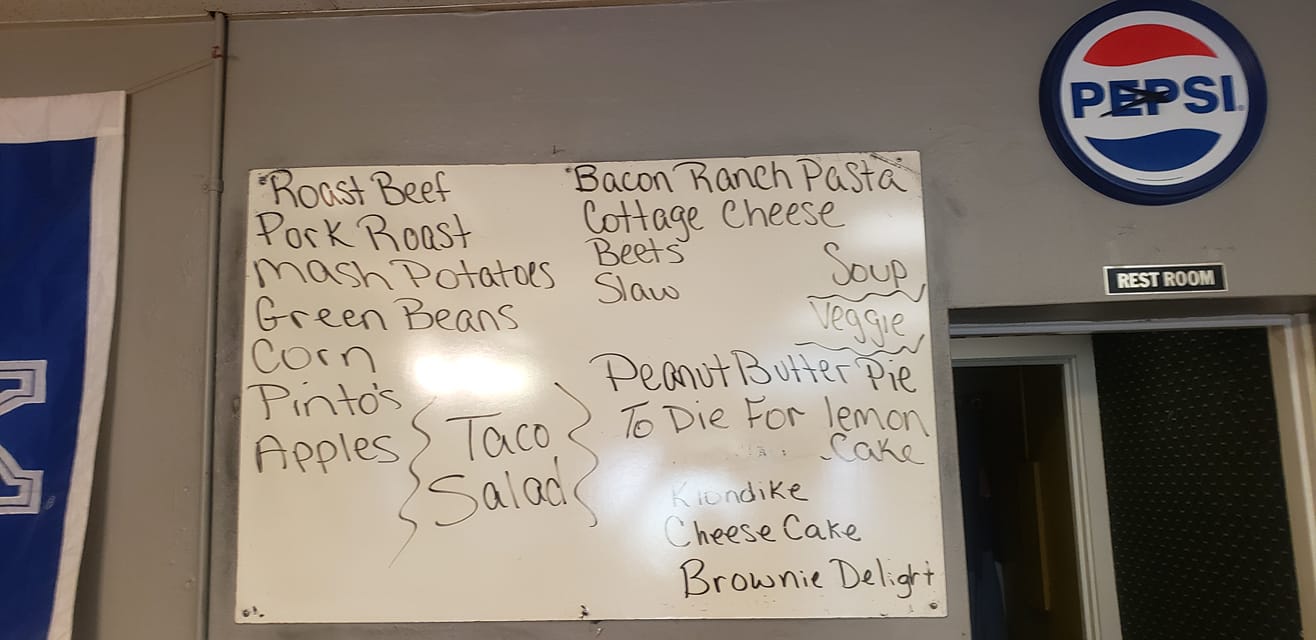 Roast Beef
Pork Roast
Mash Potatoes
Green Beans
Corn
Pinto's
Apples
Taco
Salad
Bacon Ranch Pasta
Cottage Cheese
Beets
Slaw
Soup
Veggie
Peanut Butter Pie
To Die For lemon
Cake
Klondike
Cheese Cake
Brownie Delight
PEPSI
REST ROOM
K